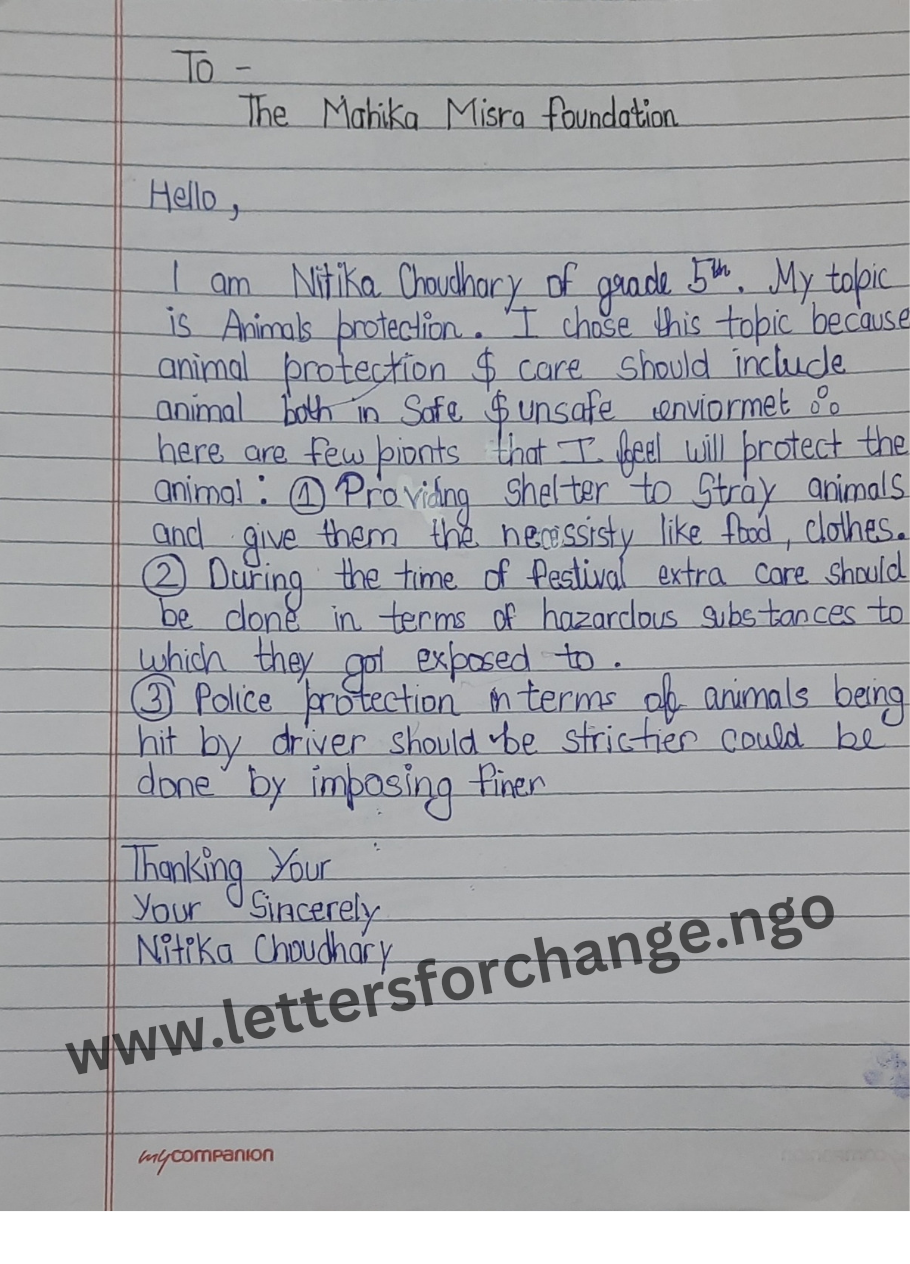 To -
The Mahika Misra foundation
Hello,
I am Nitika Choudhary of grade 5th. My topic
is Animals protection. I chose this topic because
animal protection $ care should include
animal both in Safe $ unsafe enviormet
here are few pionts that I feel will protect the
animal: ① Providing shelter to stray animals
and give them the necessisty like food, clothes.
② During the time of festival extra care should
be done in terms of hazardous substances to
which they got exposed to.
③ Police protection in terms of animals being
hit by driver should be strictier could be
done by imposing finer
Thanking Your
Your Sincerely
Nitika Choudhary
www.lettersforchange.ngo
mycompanion